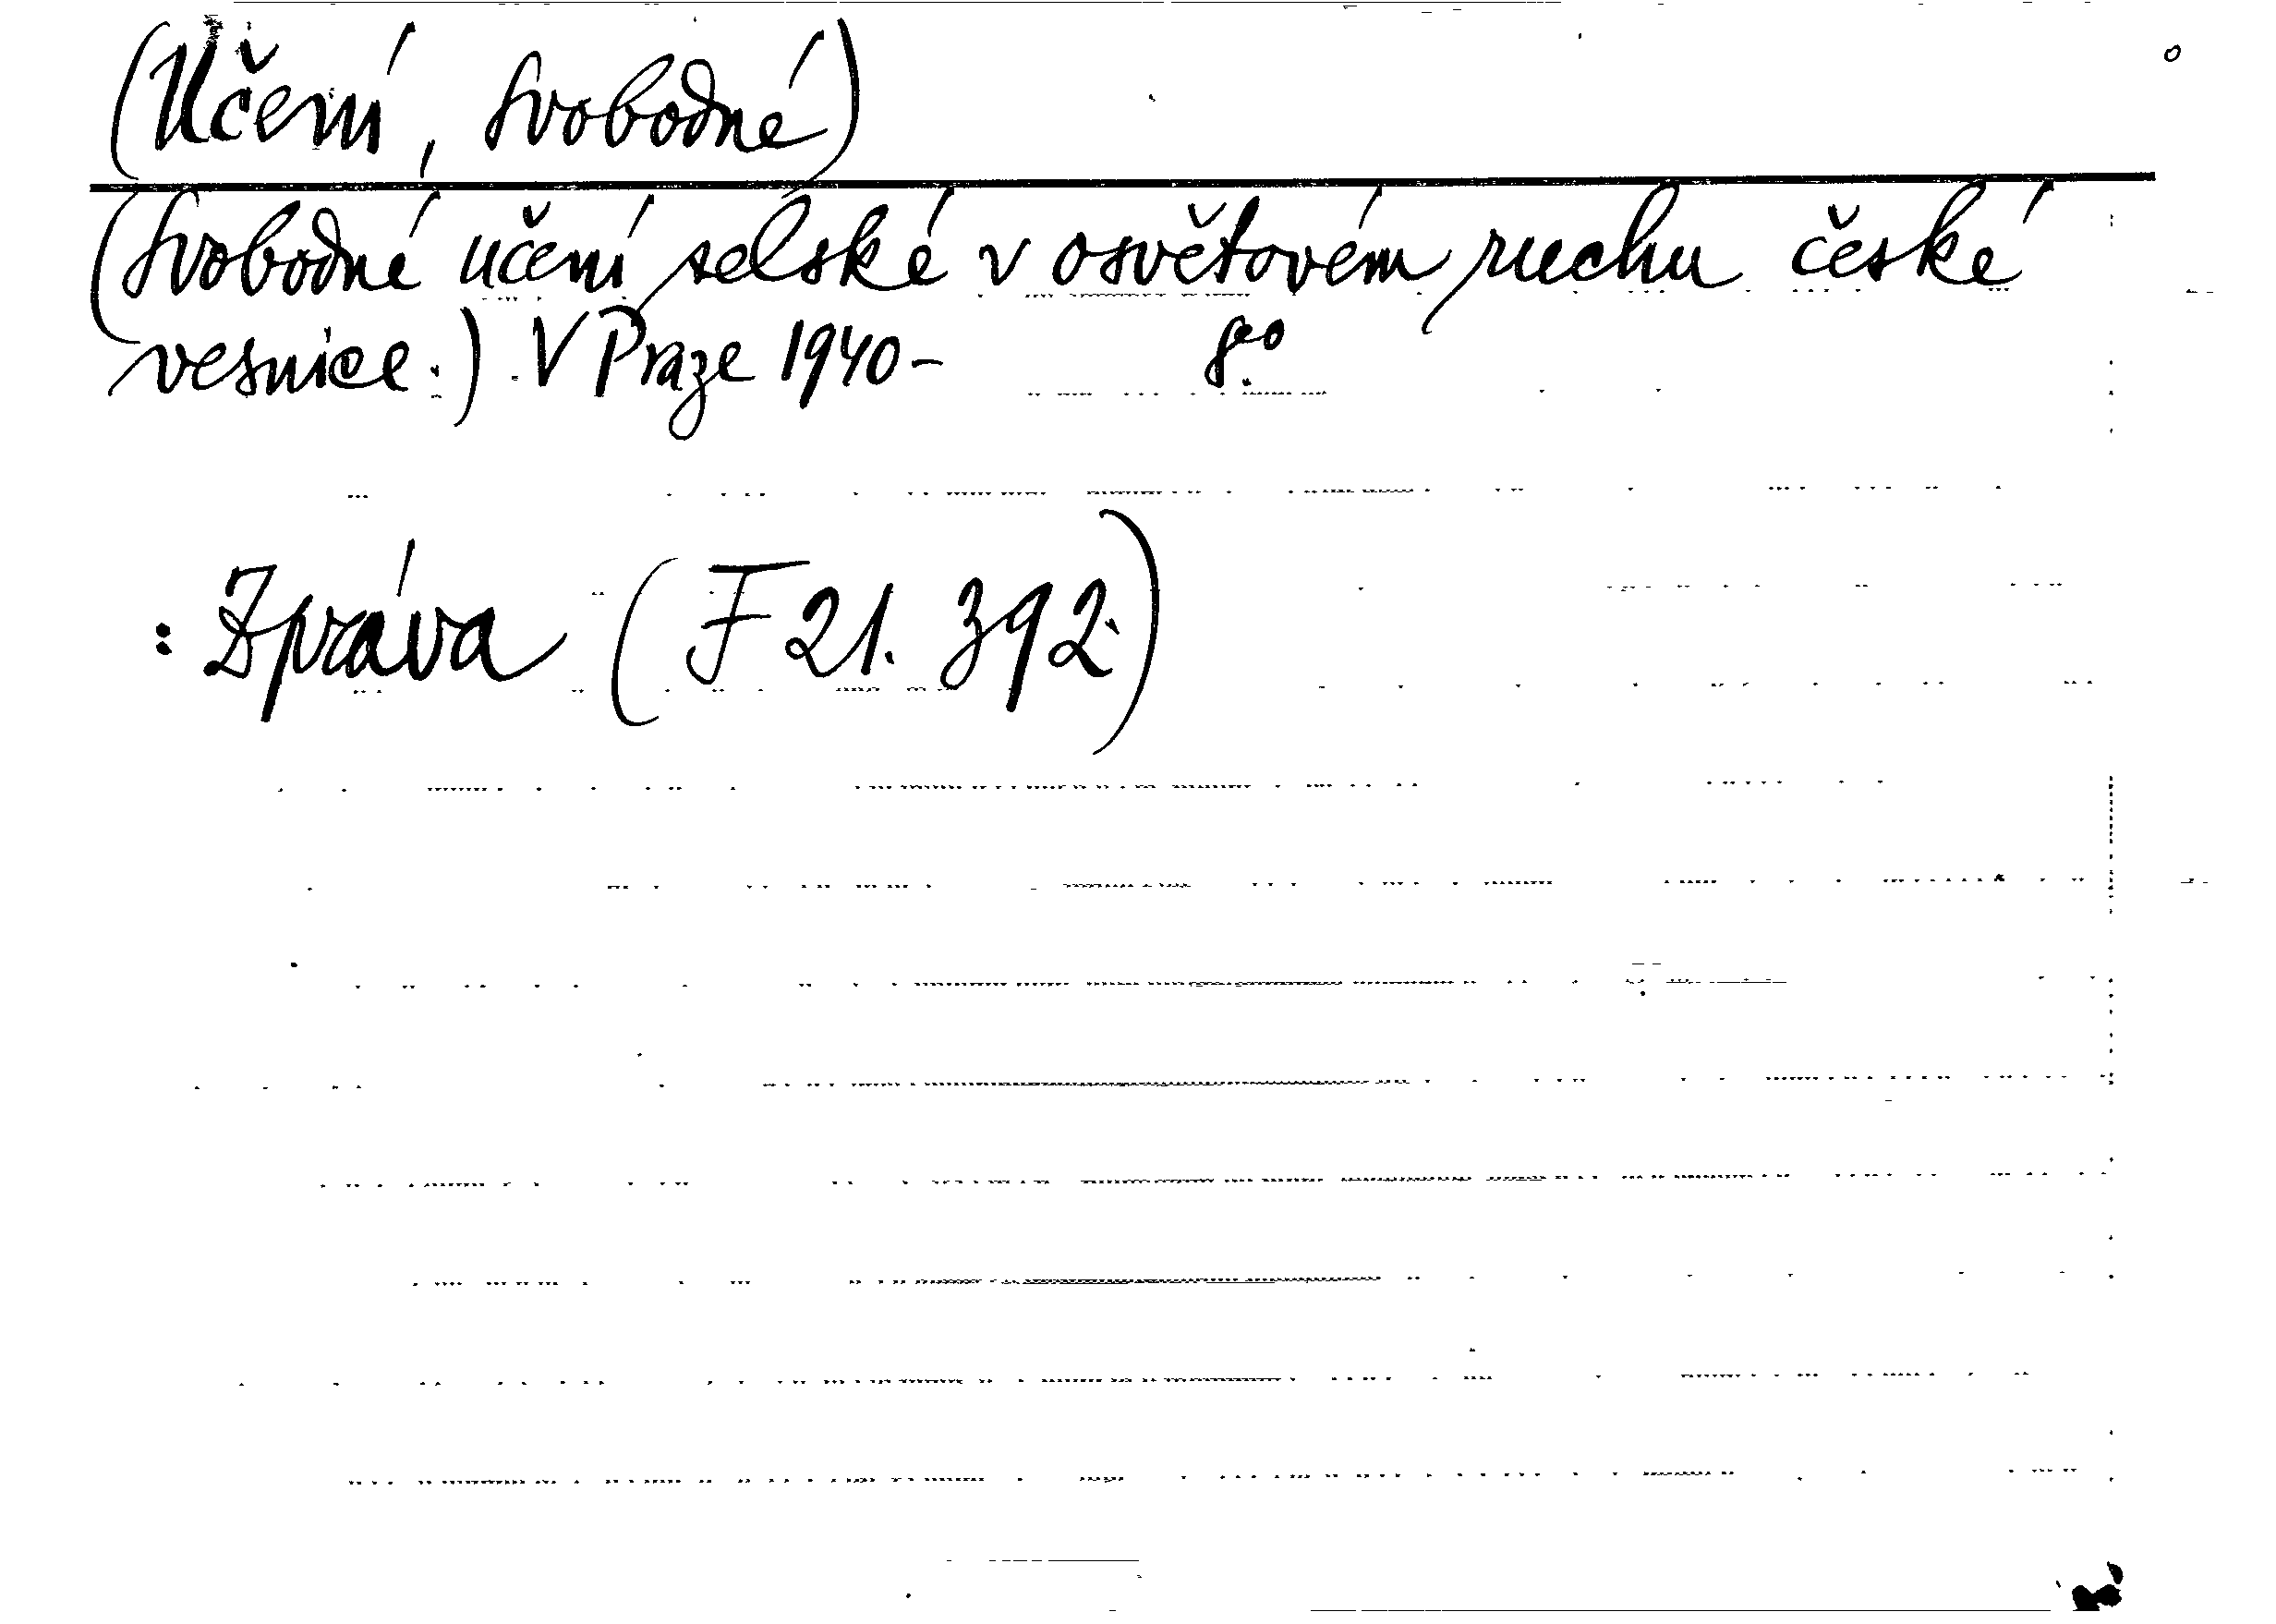 (Učení, Svobodné)
(Svobodné učení selské v osvětovém ruchu české
vesnice.) V Praze 1940- 8°
: Zpráva (F 21. 392.)